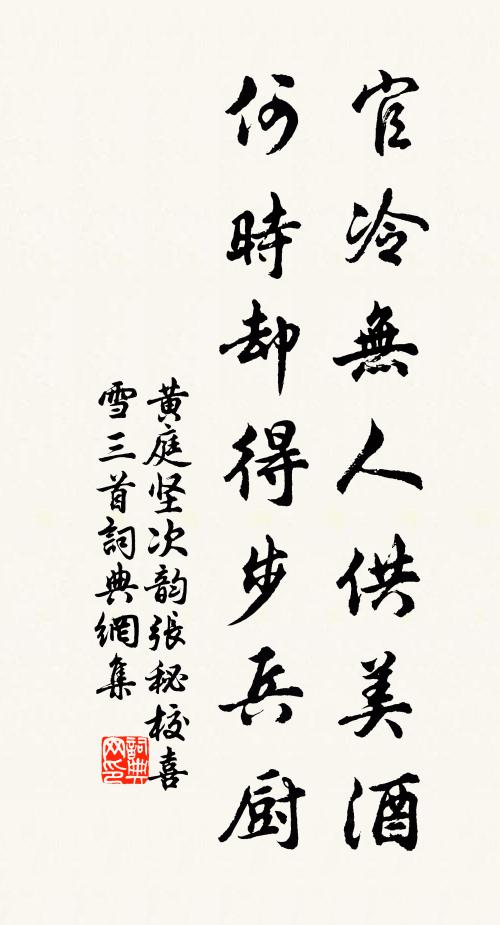 官冷無人供美酒
何時却得步兵厨
黄庭坚次韵張秘校喜
雪三首詞典網集
詞典網印